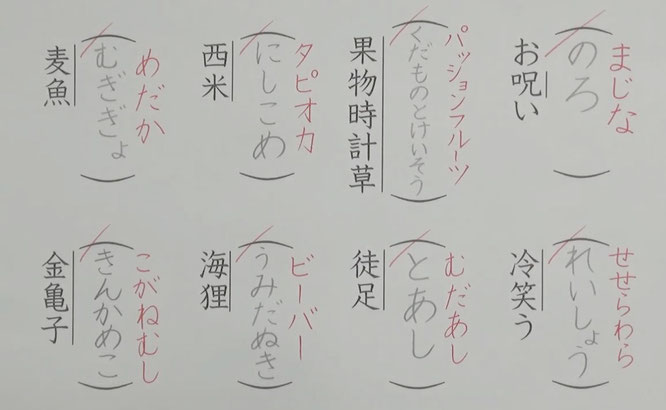 お呪い
(のろ)
まじな
果物時計草
(くだものとけいそう)
パッションフルーツ
西米
(にしこめ)
タピオカ
麦魚
(むぎぎょ)
めだか
冷笑う
(れいしょう)
せせらわら
徒足
(とあし)
むだあし
海狸
(うみだぬき)
ビーバー
金亀子
(きんかめこ)
こがねむし